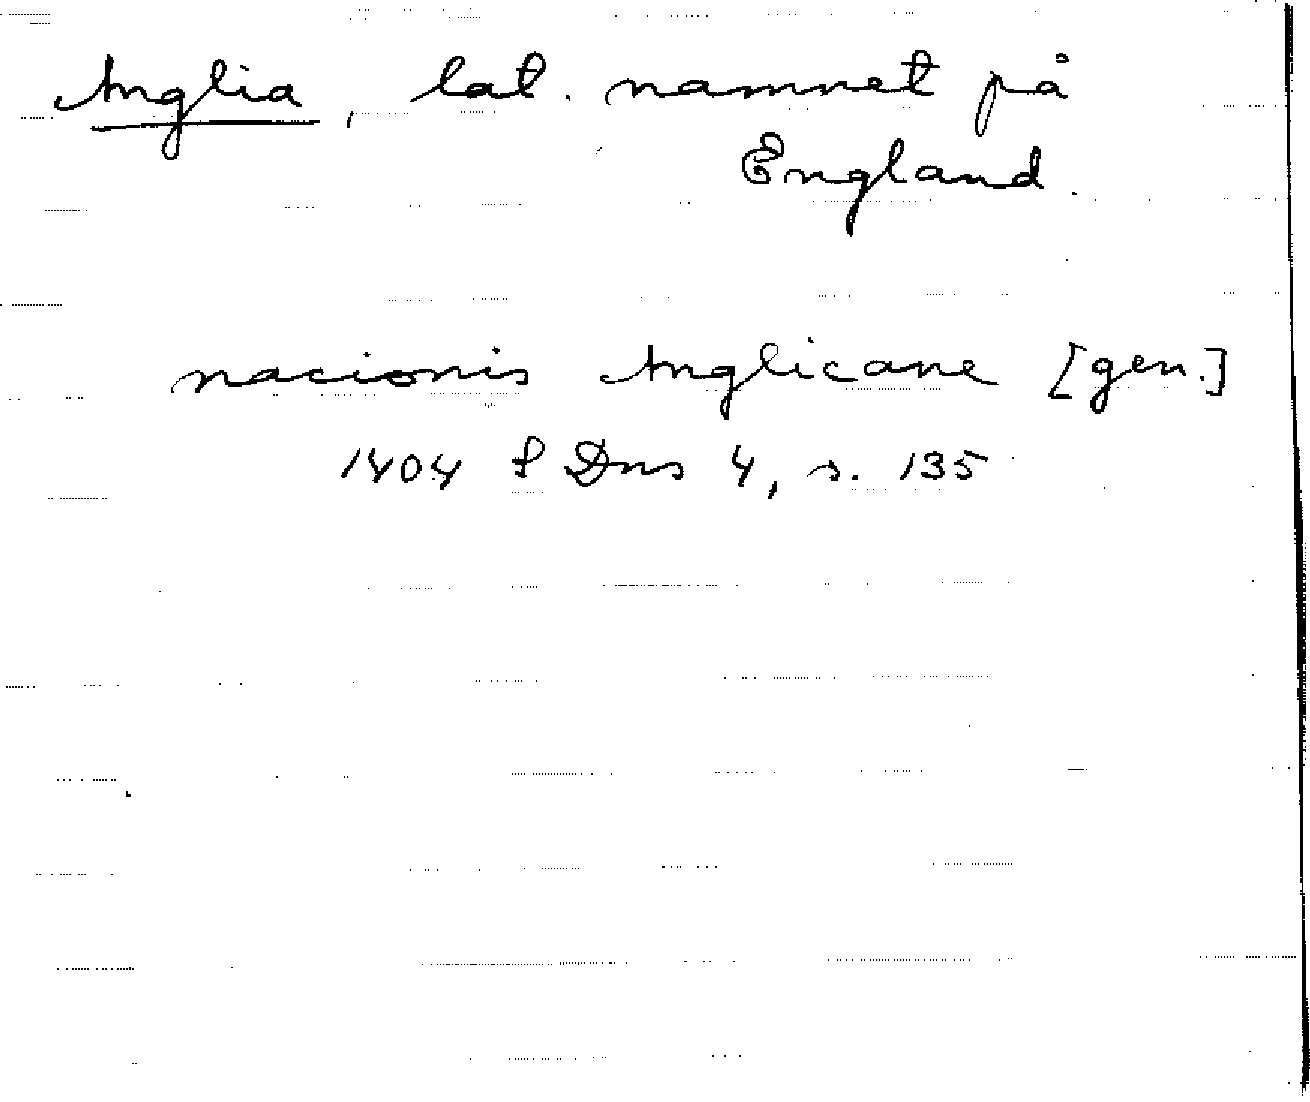 Anglia, lat. namnet på
England.
nacionis Anglicane [gen.]
1404 P Dns 4, s. 135